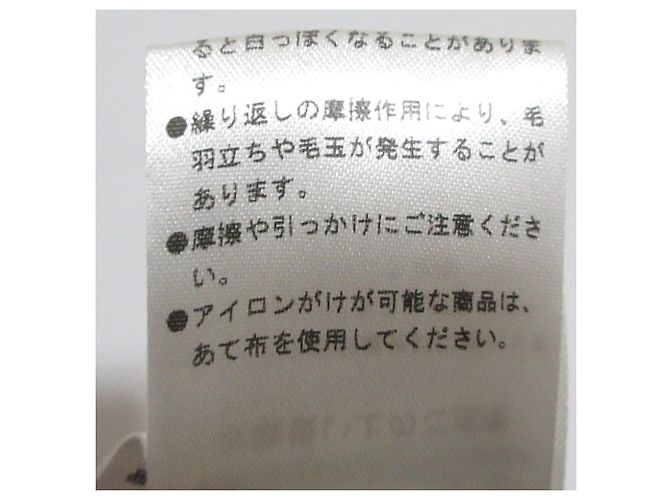 ると白っぽくなることがありま
す。
●繰り返しの摩擦作用により、毛
羽立ちや毛玉が発生することが
あります。
●摩擦や引っかけにご注意くださ
い。
●アイロンがけが可能な商品は、
あて布を使用してください。